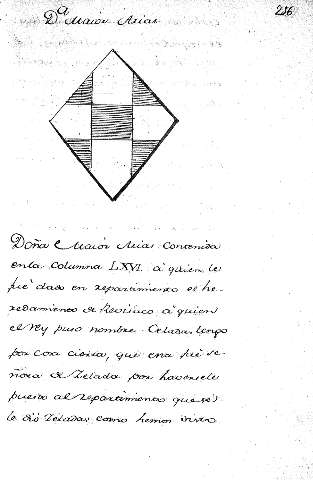 Dª Maior Arias
256
Doña Maior Arias contenida
en la columna LXVI. á quien le
fué dado en repartimiento el he-
redamiento de á quien
el Rey puso nombre Celada, tengo
por cosa cierta, que era fué se-
ñora de Zelada por haversele
puesto al repartimiento que se
le dió Zeladas como hemos visto